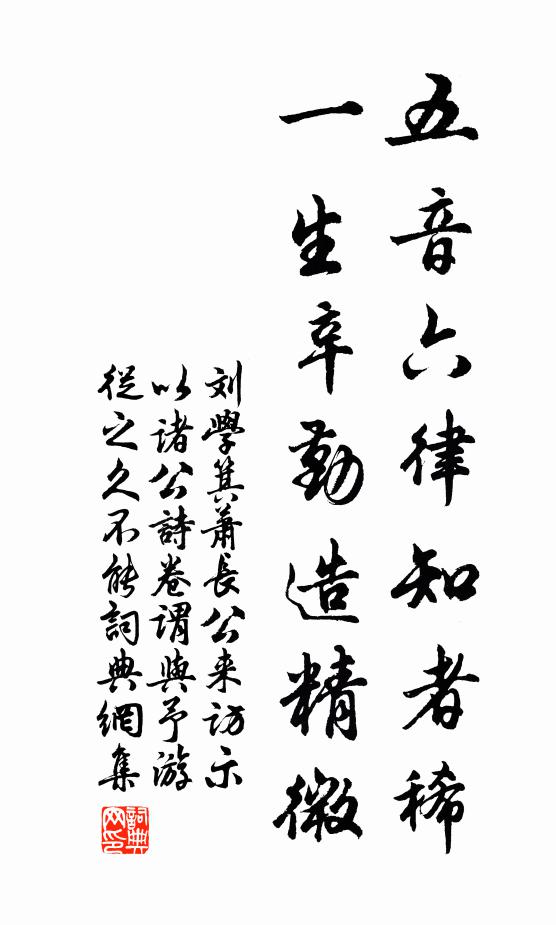 五音六律知者稀
一生辛勤造精微
刘學箕蕭長公来訪示
以诸公詩卷謂與予游
從之久不能詞典網集
詞典网印